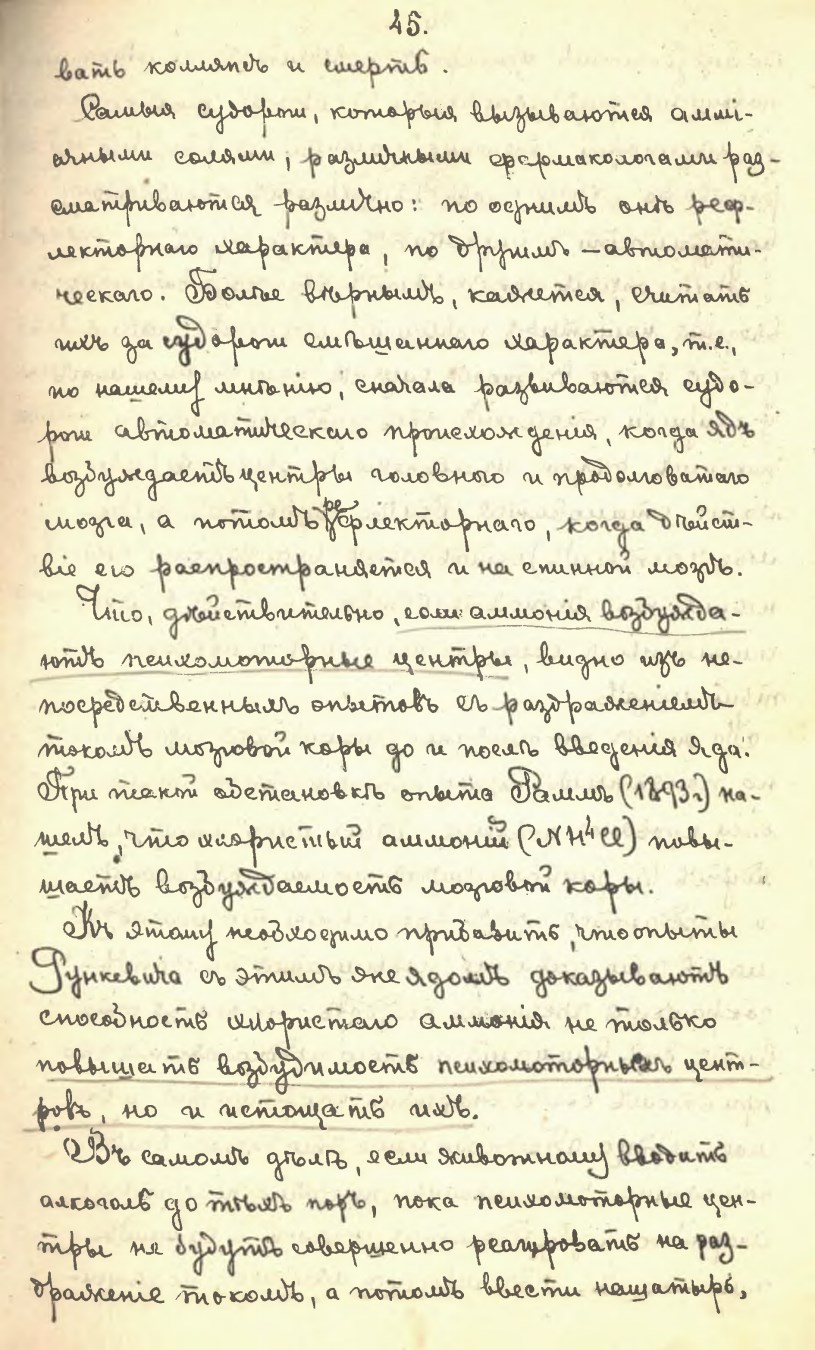 45.
вать коллапсъ и смерть.
Самыя судороги, которыя вызываются аммі-
ачными солями, различными фармакологами раз-
сматриваются различно: по однимъ онѣ реф-
лекторнаго характера, по другимъ — автомати-
ческаго. Болѣе вѣрнымъ, кажется, считать
ихъ за судороги смѣшаннаго характера, т.е.,
по нашему мнѣнію, сначала развиваются судо-
роги автоматическаго происхожденія, когда ядъ
возбуждаетъ центры головного и продолговатаго
мозга, а потомъ рефлекторнаго, когда дѣйст-
віе его распространяется и на спинной мозгъ.
Что, дѣйствительно, соли аммонія возбужда-
ютъ психомоторные центры, видно изъ не-
посредственныхъ опытовъ съ раздраженіемъ
токомъ мозговой коры до и послѣ введенія яда.
При такой обстановкѣ опыта Раммъ (1893 г) на-
шелъ, что хлористый аммоній (NH⁴Cl) повы-
шаетъ возбуждаемость мозговой коры.
Къ этому необходимо прибавить, что опыты
Рункевича съ этимъ же ядомъ доказываютъ
способность хлористаго аммонія не только
повышать возбудимость психомоторныхъ цент-
ровъ, но и истощать ихъ.
Въ самомъ дѣлѣ, если животному вводить
алкоголь до тѣхъ поръ, пока психомоторные цен-
тры не будутъ совершенно реагировать на раз-
драженіе токомъ, а потомъ ввести нашатырь,